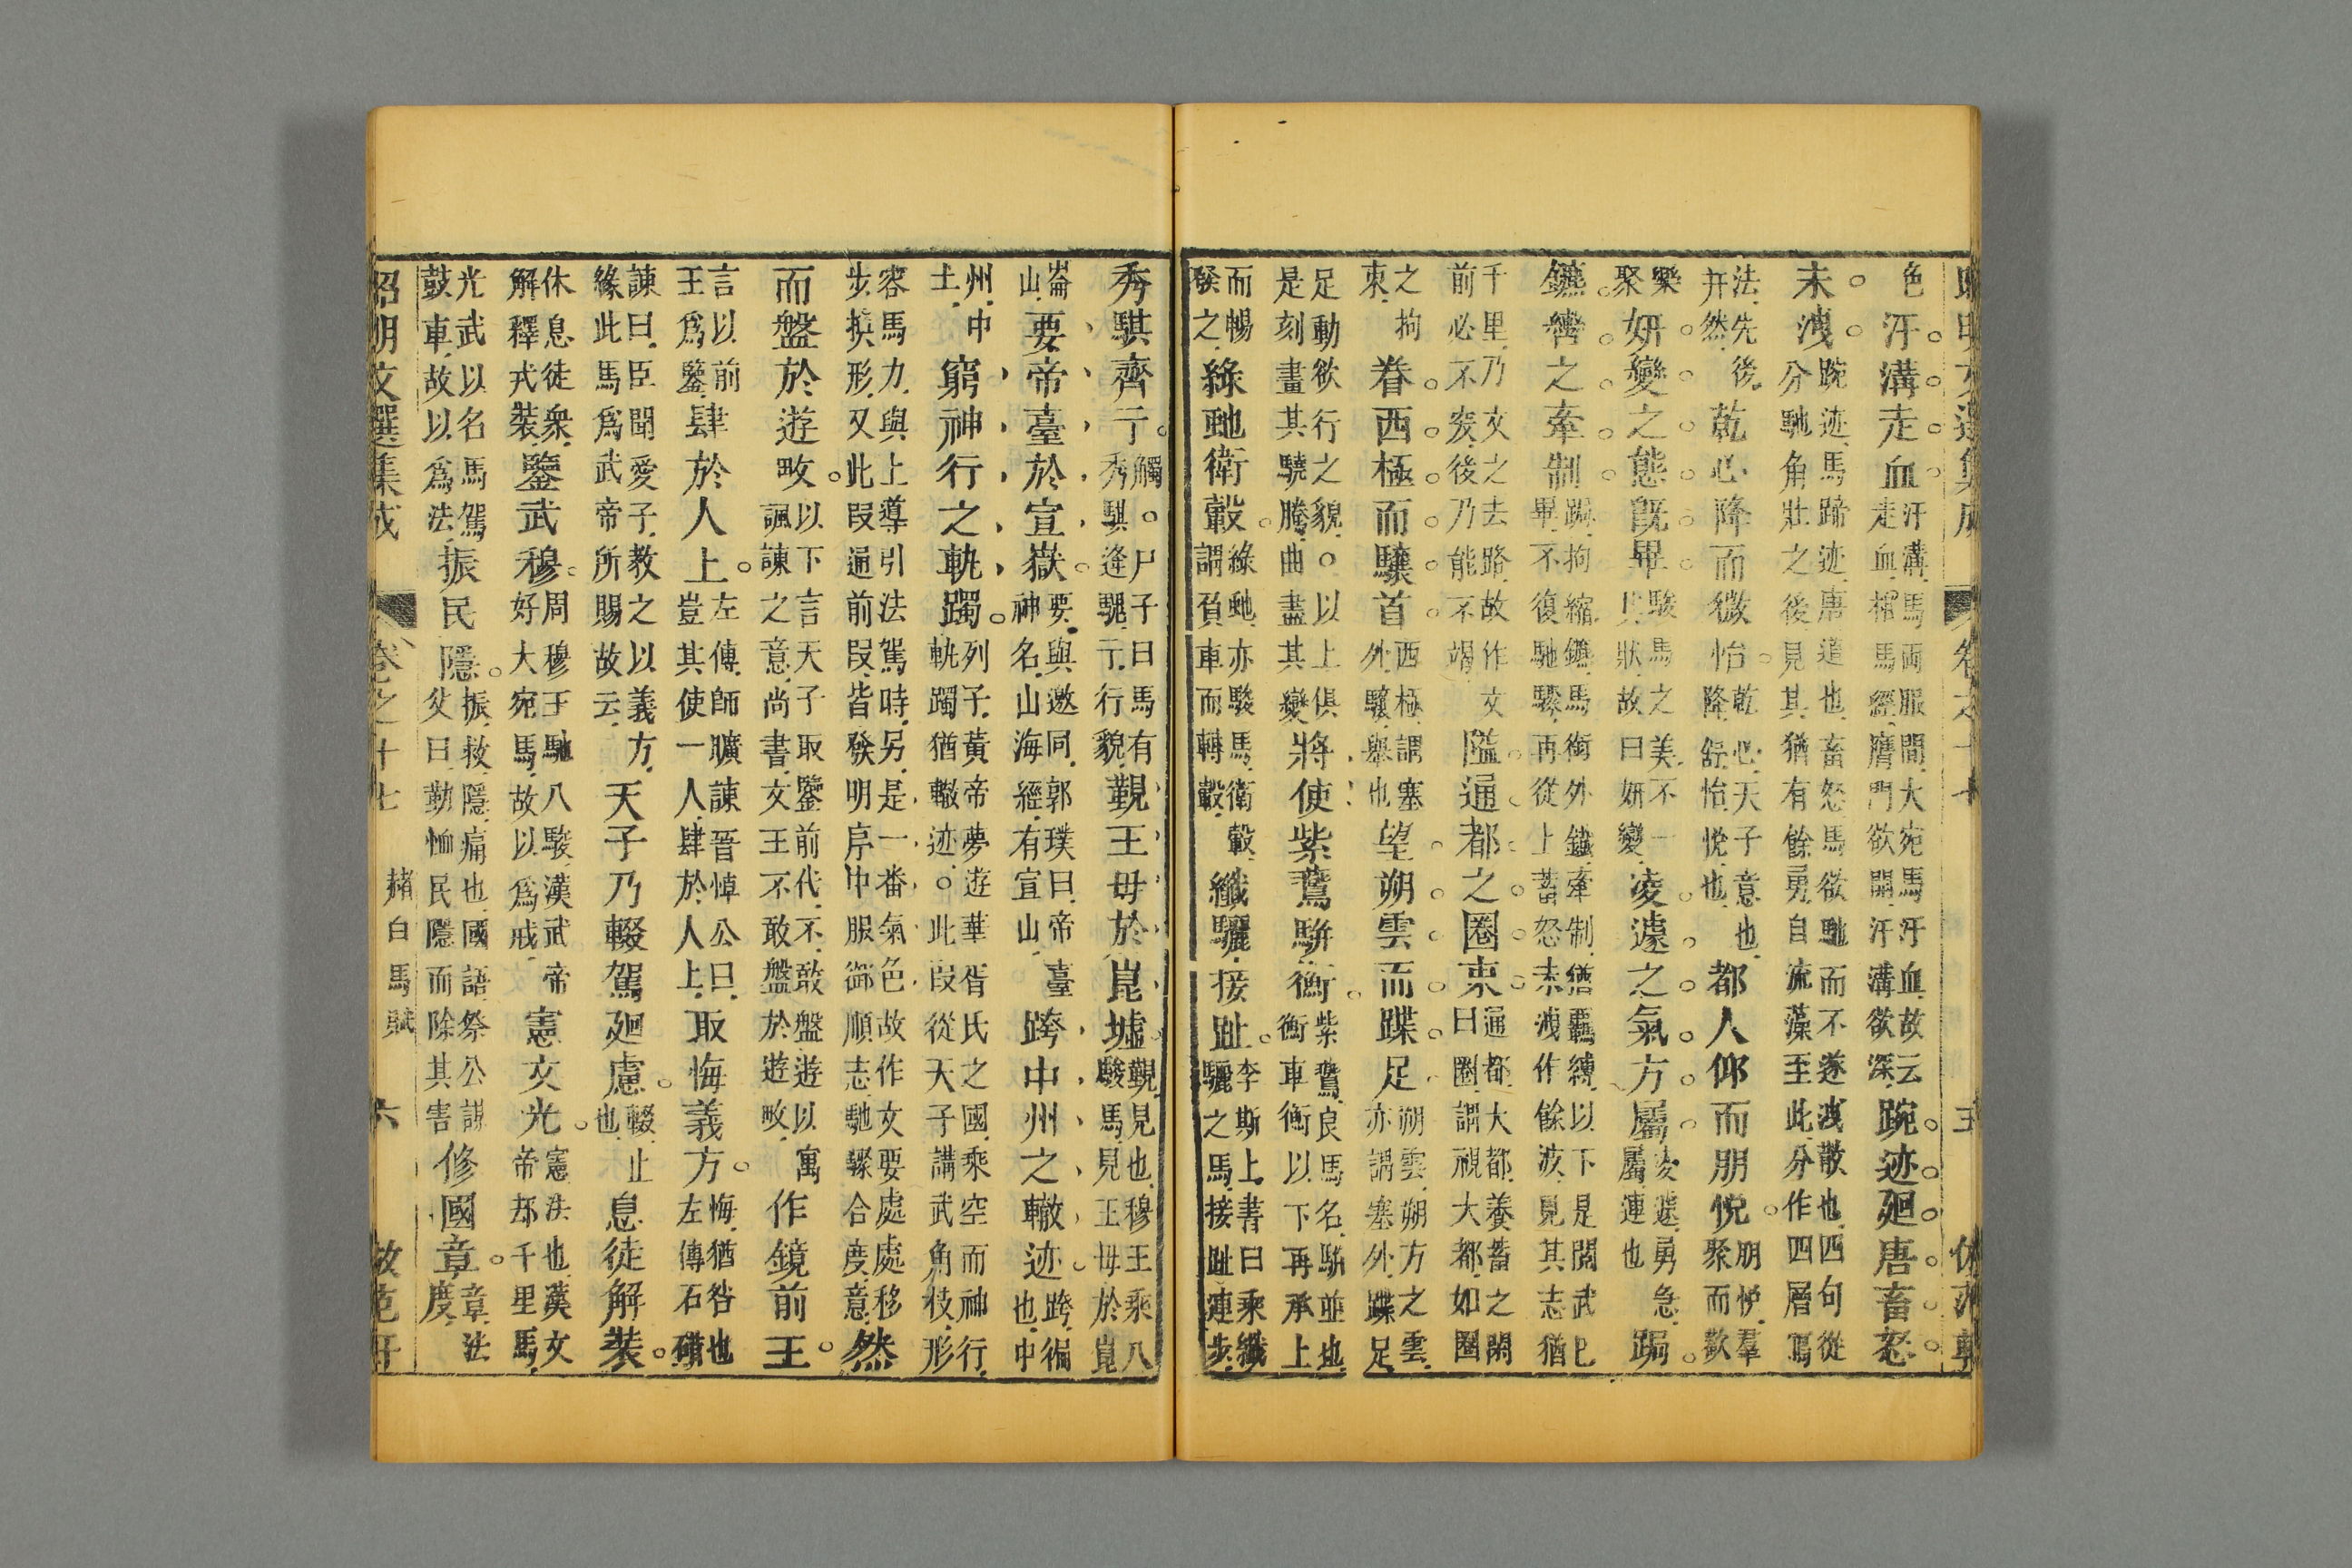 昭明文選集成 卷之十七 五
色汗溝走血汗溝馬兩服間大宛馬汗血故云走血相馬經膺門欲開汗溝欲深踠迹廻唐畜怒
未洩踠迹馬蹄迹唐道也畜怒馬欲馳而不遂洩散也四句從分馳角壯之後見其猶有餘勇自流藻至此分作四層寫
法先後并然乾心降而微怡乾心天子意也降舒怡悅也都人仰而朋悅朋悅羣聚而歡
樂聚妍變之態旣畢駿馬之美不一其狀故曰妍變凌遽之氣方屬凌遽勇急屬連也跼
鑣轡之牽制跼拘縮鑣馬銜外鐵牽制猶羈縛以下是閱武已畢不復馳驟再從上蓄怒未洩作餘波見其志猶
千里乃文之去路故作文前必不突後乃能不竭隘通都之圈束通都大都養蓄之閑曰圈謂視大都如圈
之拘束眷西極而驤首西極謂塞外驤舉也望朔雲而蹀足朔雲朔方之雲亦謂塞外蹀足
足動欲行之貌○以上俱是刻畫其驍騰曲盡其變將使紫鷰駢衡紫鷰良馬名駢並也衡車衡以下再承上
而暢發之綠虵衛轂綠虵亦駿馬衛轂謂頁車而轉轂纖驪接趾李斯上書曰乘纖驪之馬接趾連步
秀騏齊亍觸○尸子曰馬有秀騏逄騩亍行貌覲王毋於崑墟覲見也穆王乘八駿馬見王毋於崑
崙山要帝臺於宣嶽要與邀同郭璞曰帝臺神名山海經有宣山跨中州之轍迹跨徧也中
州中土窮神行之軌躅列子黃帝夢遊華胥氏之國乘空而神行軌躅猶轍迹○此段從天子講武角技形
容馬力與上導引法駕時另是一番氣色故作文要處處移步換形又此段通前段皆發明序中服御順志馳驟合度意然
而盤於遊畋以下言天子取鑒前代不敢盤遊以寓諷諫之意尚書文王不敢盤於遊畋作鏡前王
言以前王爲鑒肆於人上左傳師曠諫晉悼公曰豈其使一人肆於人上取悔義方悔猶咎也左傳石碏
諫曰臣聞愛子教之以義方緣此馬爲武帝所賜故云天子乃輟駕廻慮輟止也息徒解裝
休息徒衆解釋戎裝鑒武穆周穆王馳八駿漢武帝好大宛馬故以爲戒憲文光憲法也漢文帝却千里馬
光武以名馬駕鼓車故以爲法振民隱振救隱痛也國語祭公謀父曰勤恤民隱而除其害修國章章法度
昭明文選集成 卷之十七 赭白馬賦 六